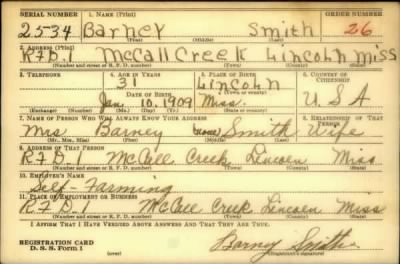 SERIAL NUMBER 1. NAME (Print) ORDER NUMBER
2534 Barney Smith 26
(First) (Middle) (Last)
2. ADDRESS (Print)
RFD1 McCall Creek Lincoln Miss
(Number and street or R. F. D. number) (Town) (County) (State)
3. TELEPHONE 4. AGE IN YEARS 5. PLACE OF BIRTH 6. COUNTRY OF CITIZENSHIP
31 Lincoln
DATE OF BIRTH (Town or county)
Jan. 10, 1909 Miss. U.S.A
(Exchange) (Number) (Mo.) (Day) (Yr.) (State or country)
7. NAME OF PERSON WHO WILL ALWAYS KNOW YOUR ADDRESS 8. RELATIONSHIP OF THAT PERSON
Mrs Barney (none) Smith Wife
(Mr., Mrs., Miss) (First) (Middle) (Last)
9. ADDRESS OF THAT PERSON
RFD.1 McCall Creek Lincoln Miss
(Number and street or R. F. D. number) (Town) (County) (State)
10. EMPLOYER'S NAME
Self-Farming
11. PLACE OF EMPLOYMENT OR BUSINESS
RFD.1 McCall Creek Lincoln Miss
(Number and street or R. F. D. number) (Town) (County) (State)
I AFFIRM THAT I HAVE VERIFIED ABOVE ANSWERS AND THAT THEY ARE TRUE.
REGISTRATION CARD
D. S. S. Form 1 Barney Smith
(Registrant's signature)